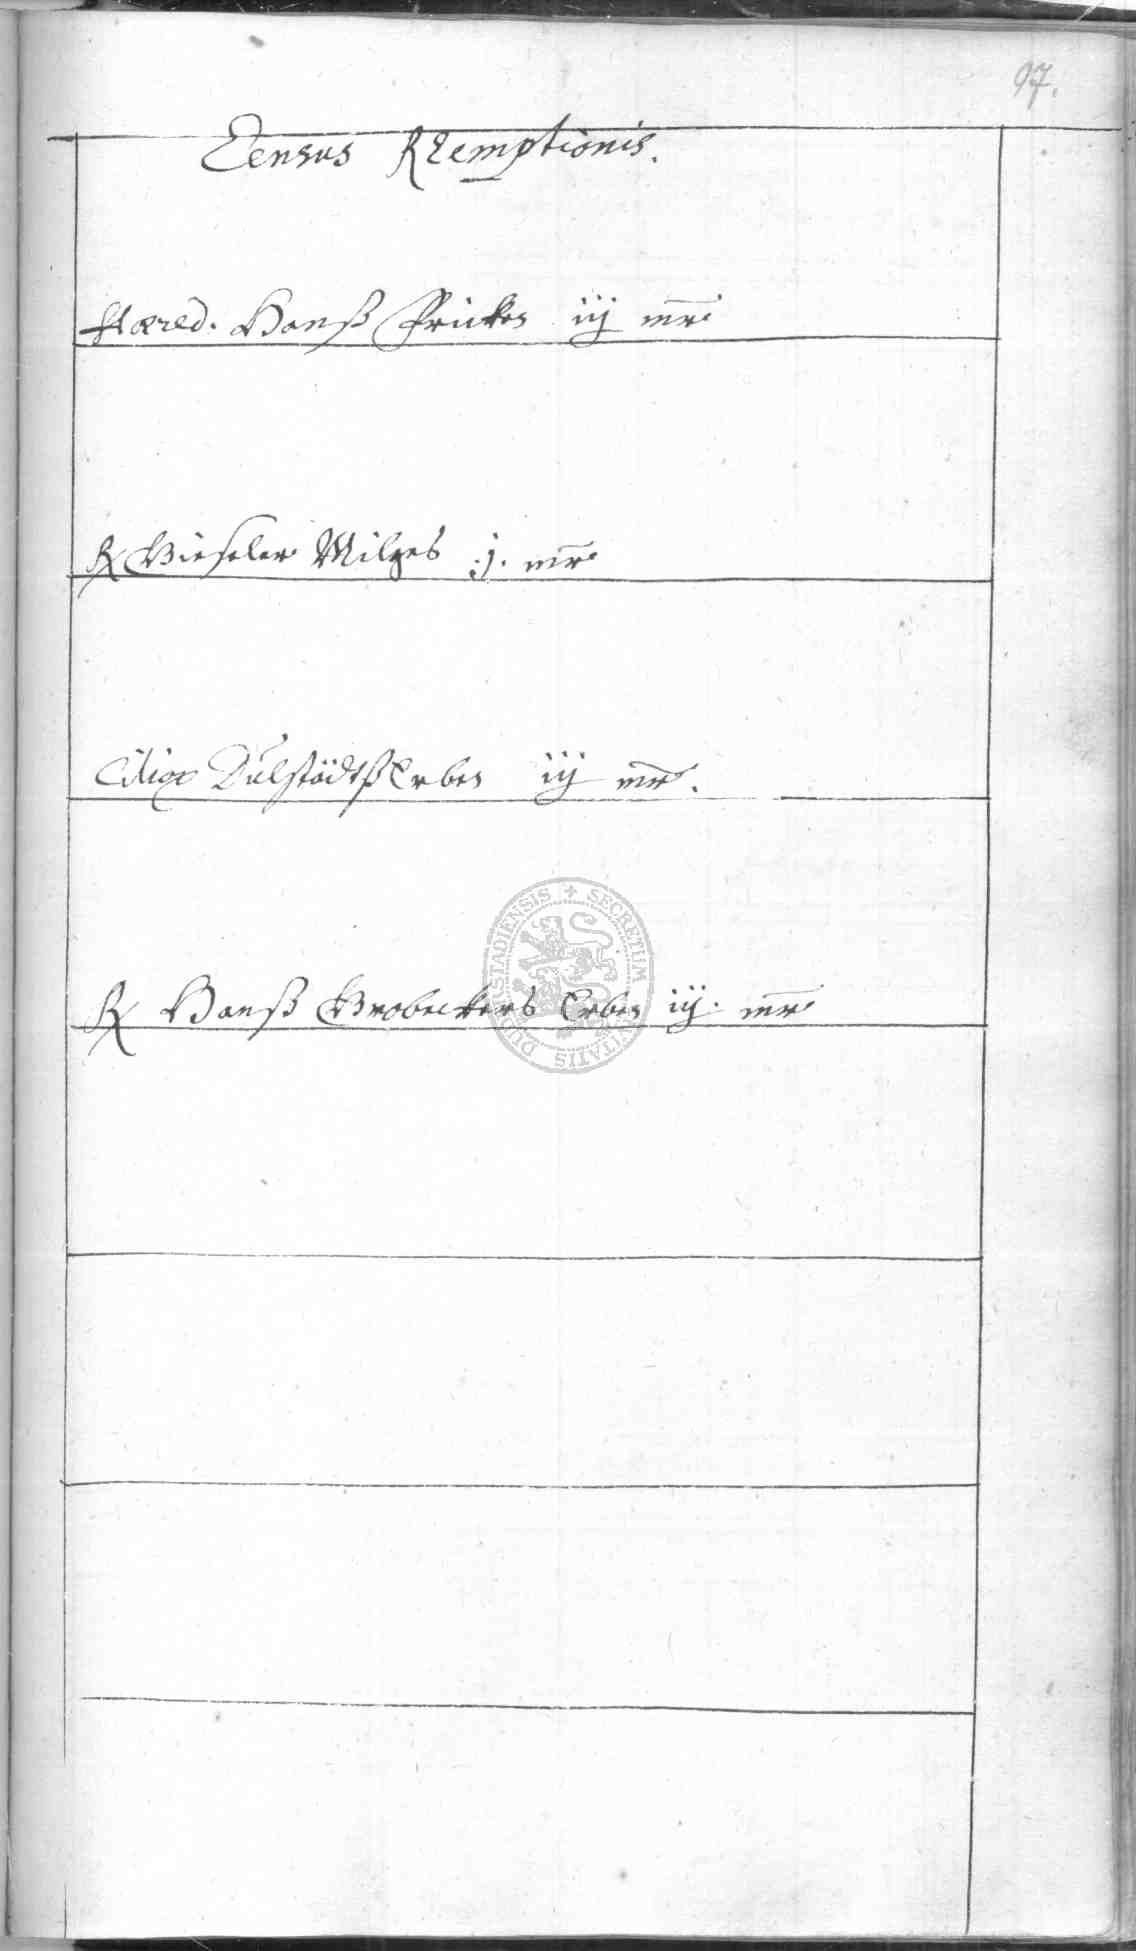 97.
Census REemptionis.
Hæred. Hanß Fricken iij mr
R Gieseler Milges j. mr
Ciliax Dulstädtß Erben iij mr.
R Hanß Brobeckers Erben iij. mr
SECRETUM CIVITATIS DUDERSTADIENSIS